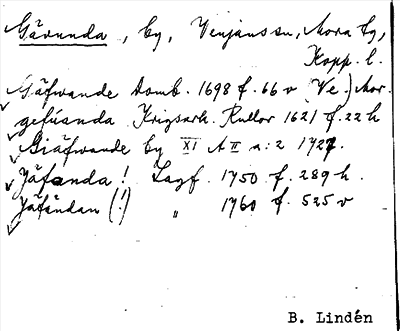 Gävunda, by, Venjans sn, Mora tg,
Kopp. l.
Gäfwande Domb. 1698 f. 66 v (Ve.) Mor.
gefúanda Krigsark. Rullor 1621 f. 22 h
Giäfwande by XI A II a: 2 1727.
Jäfanda! Lagf. 1750 f. 289 h.
Jäfändan (!) " 1760 f. 525 v
B. Lindén